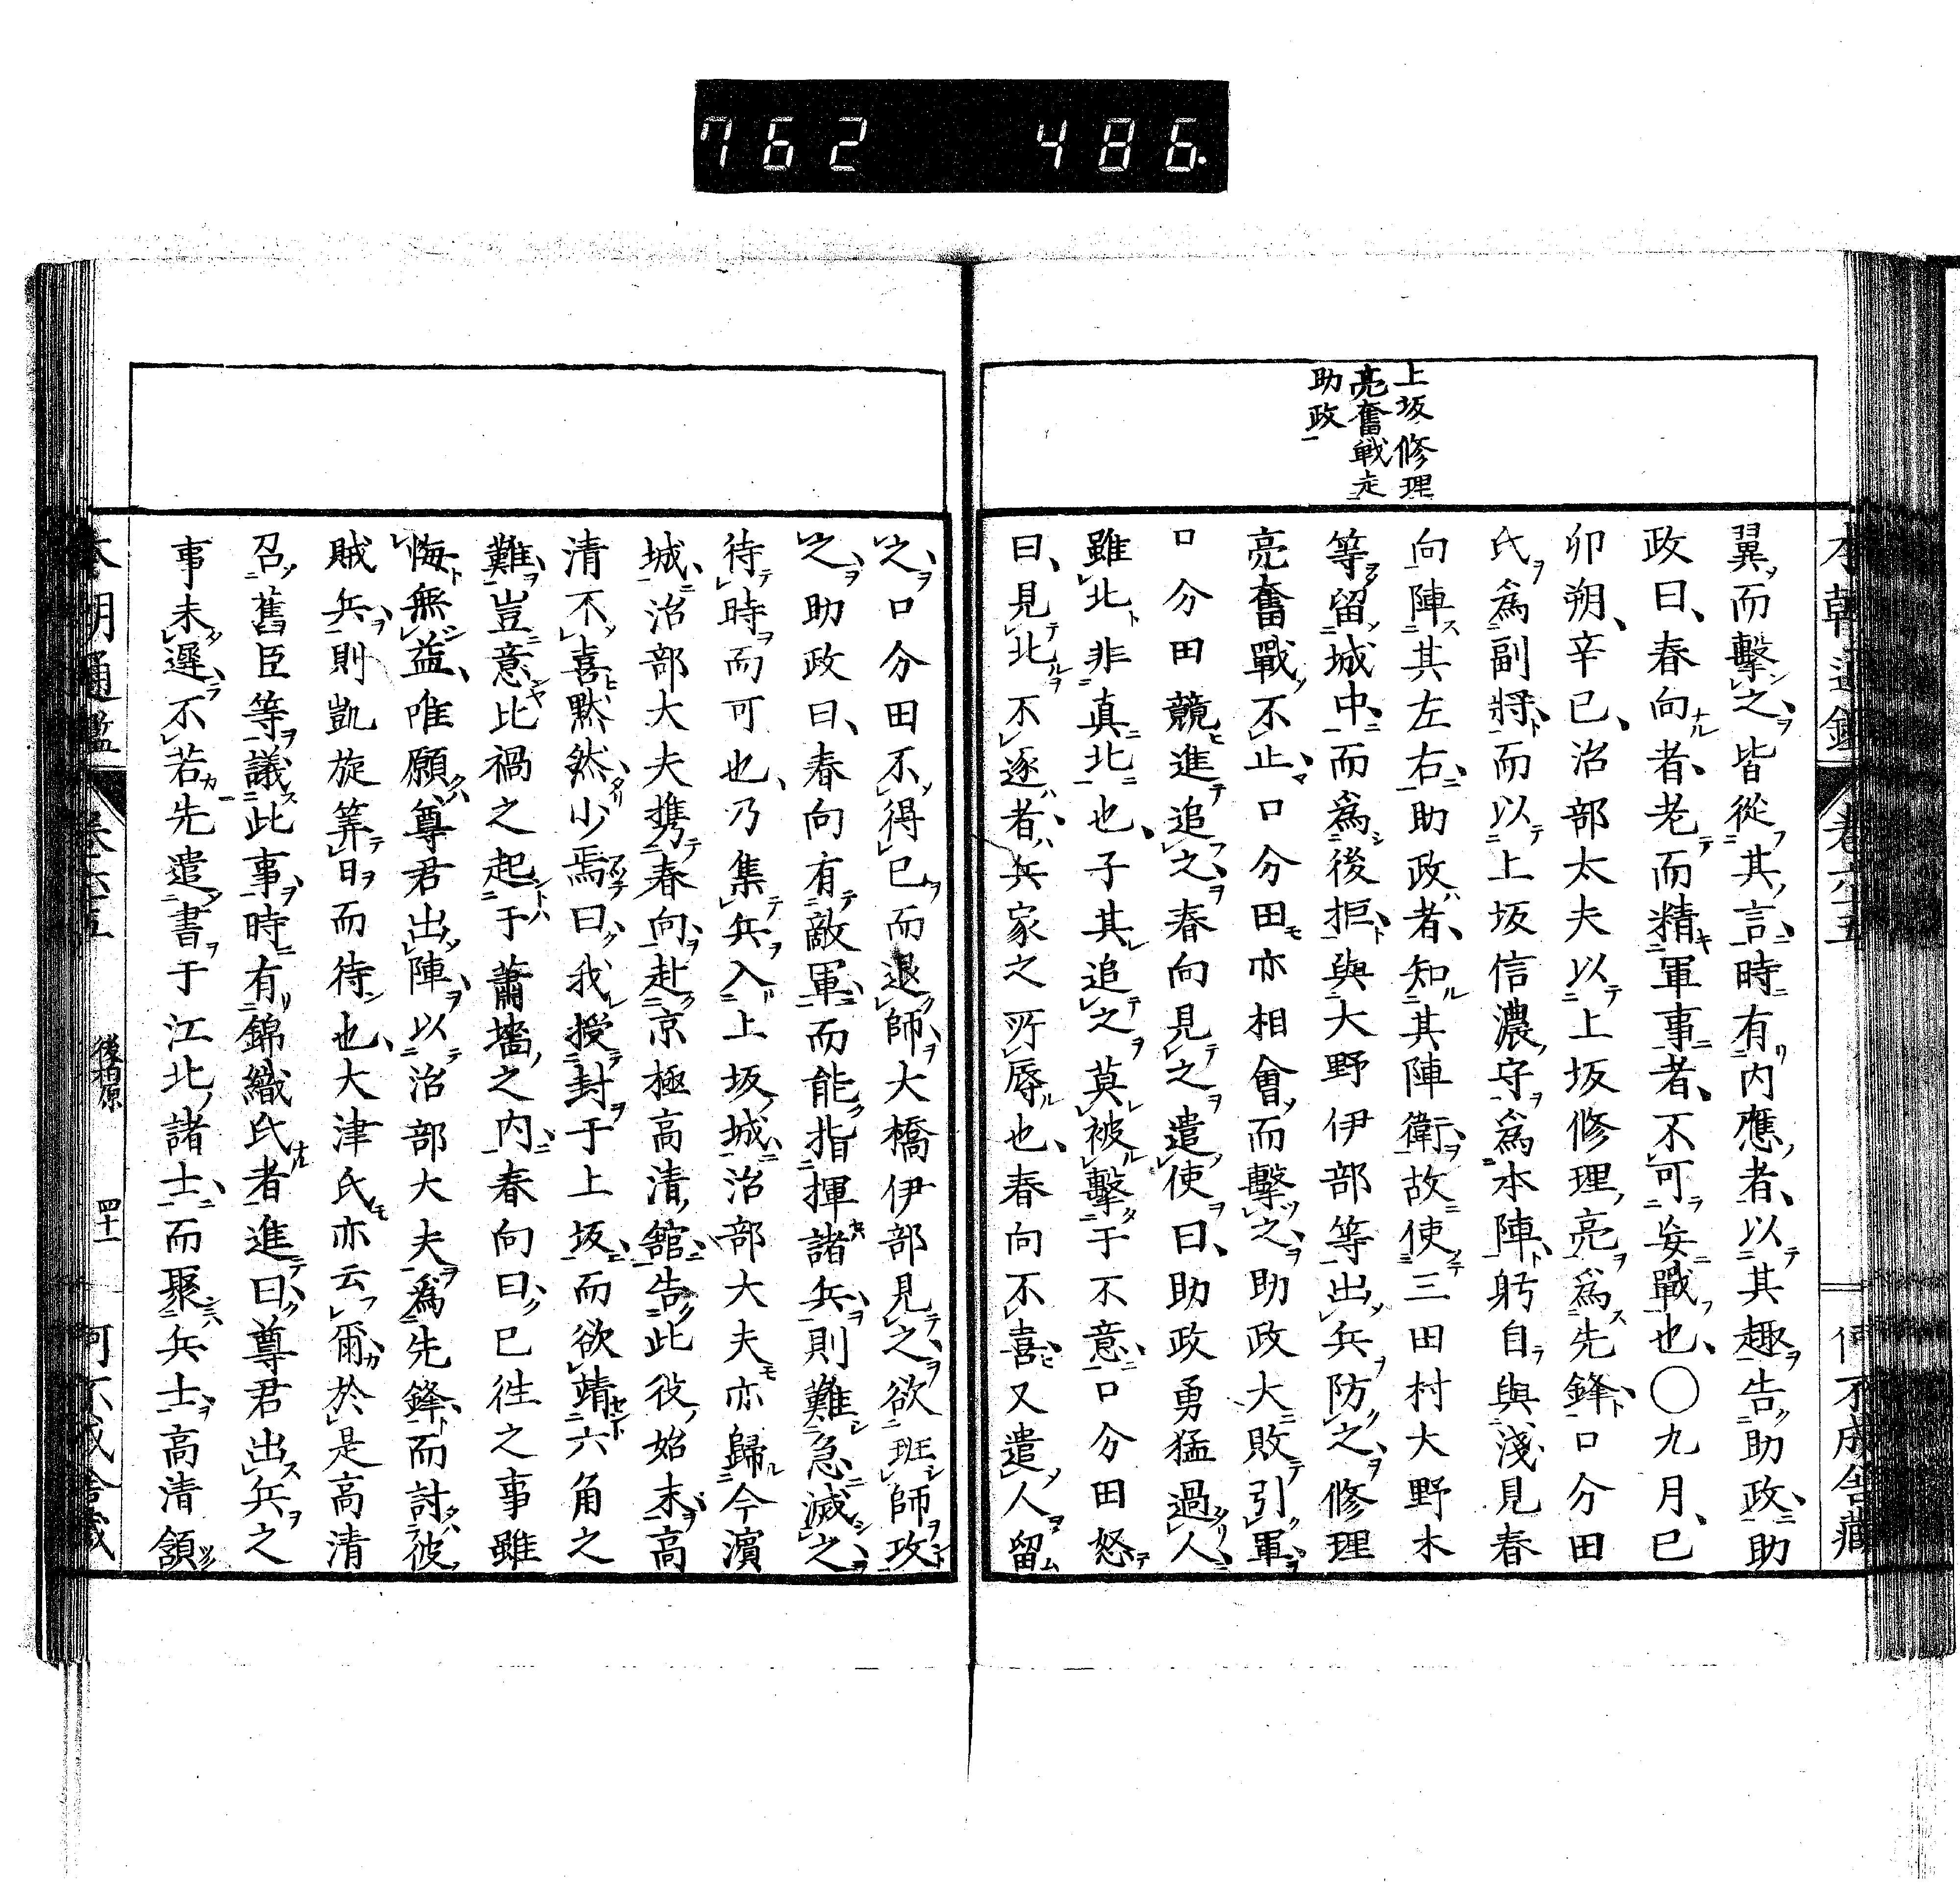 762 486.
上坂修理
亮奮戰走
助政
翼而擊之皆從其言時有内應者以其趣告助政助
政曰春向者老而精軍事者不可妄戰也〇九月巳
卯朔辛巳治部太夫以上坂修理亮爲先鋒口分田
氏爲副將而以上坂信濃守爲本陣躬自與淺見春
向陣其左右助政者知其陣衛故使三田村大野木
等留城中而爲後拒與大野伊部等出兵防之修理
亮奮戰不止口分田亦相會而擊之助政大敗引軍
口分田競進追之春向見之遣使曰助政勇猛過人
雖北非真北也子其追之莫被擊于不意口分田怒
曰見北不逐者兵家之所辱也春向不喜又遣人留
之口分田不得已而退師大橋伊部見之欲班師攻
之助政曰春向有敵軍而能指揮諸兵則難急滅之
待時而可也乃集兵入上坂城治部大夫亦歸今濱
城治部大夫携春向赴京極高清舘告此役始末高
清不喜默然少焉曰我授封于上坂而欲靖六角之
難豈意比禍之起于蕭墻之内春向曰已徃之事雖
悔無益唯願尊君出陣以治部大夫爲先鋒而討彼
賊兵則凱旋筭日而待也大津氏亦云爾於是高清
召舊臣等議此事時有錦織氏者進曰尊君出兵之
事未遲不若先遣書于江北諸士而聚兵士高清頷
後柏原
四十一